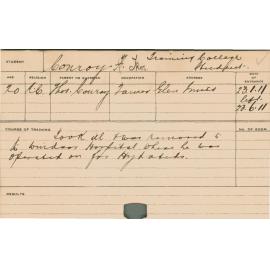 STUDENT
Conroy
Training College
AGE RELIGION PARENT OR GUARDIAN OCCUPATION ADDRESS DATE OF ENTRANCE
20 R.C. Thos. Conroy Farmer Glen Innes 23.1.11
23.6.11
COURSE OF TRAINING NO. OF ROOM
Took ill & was removed to
the Windsor Hospital where he was
operated on for
RESULTS